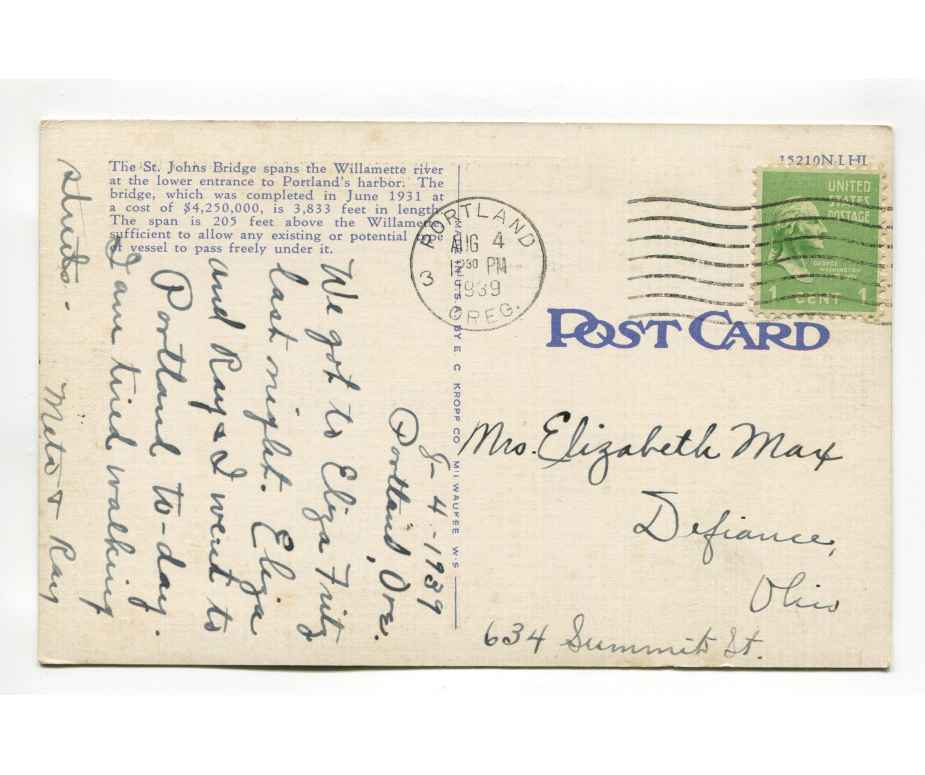 The St. Johns Bridge spans the Willamette river
at the lower entrance to Portland's harbor. The
bridge, which was completed in June 1931 at
a cost of $4,250,000, is 3,833 feet in length.
The span is 205 feet above the Willamette
sufficient to allow any existing or potential type
of vessel to pass freely under it.
8-4-1939
Portland, Ore.
We got to Eliza Fritz
last night. Eliza
and Ray & I went to
Portland to-day.
I am tired walking
streets.
Meta & Ray
MADE IN U.S.A. BY E. C. KROPP CO. MILWAUKEE, WIS.
PORTLAND
AUG 4
1230 PM
1939
3
OREG.
15210N
UNITED
STATES
POSTAGE
GEORGE
WASHINGTON
1 CENT 1
POST CARD
Mrs. Elizabeth Max
Defiance,
Ohio
634 Summit St.